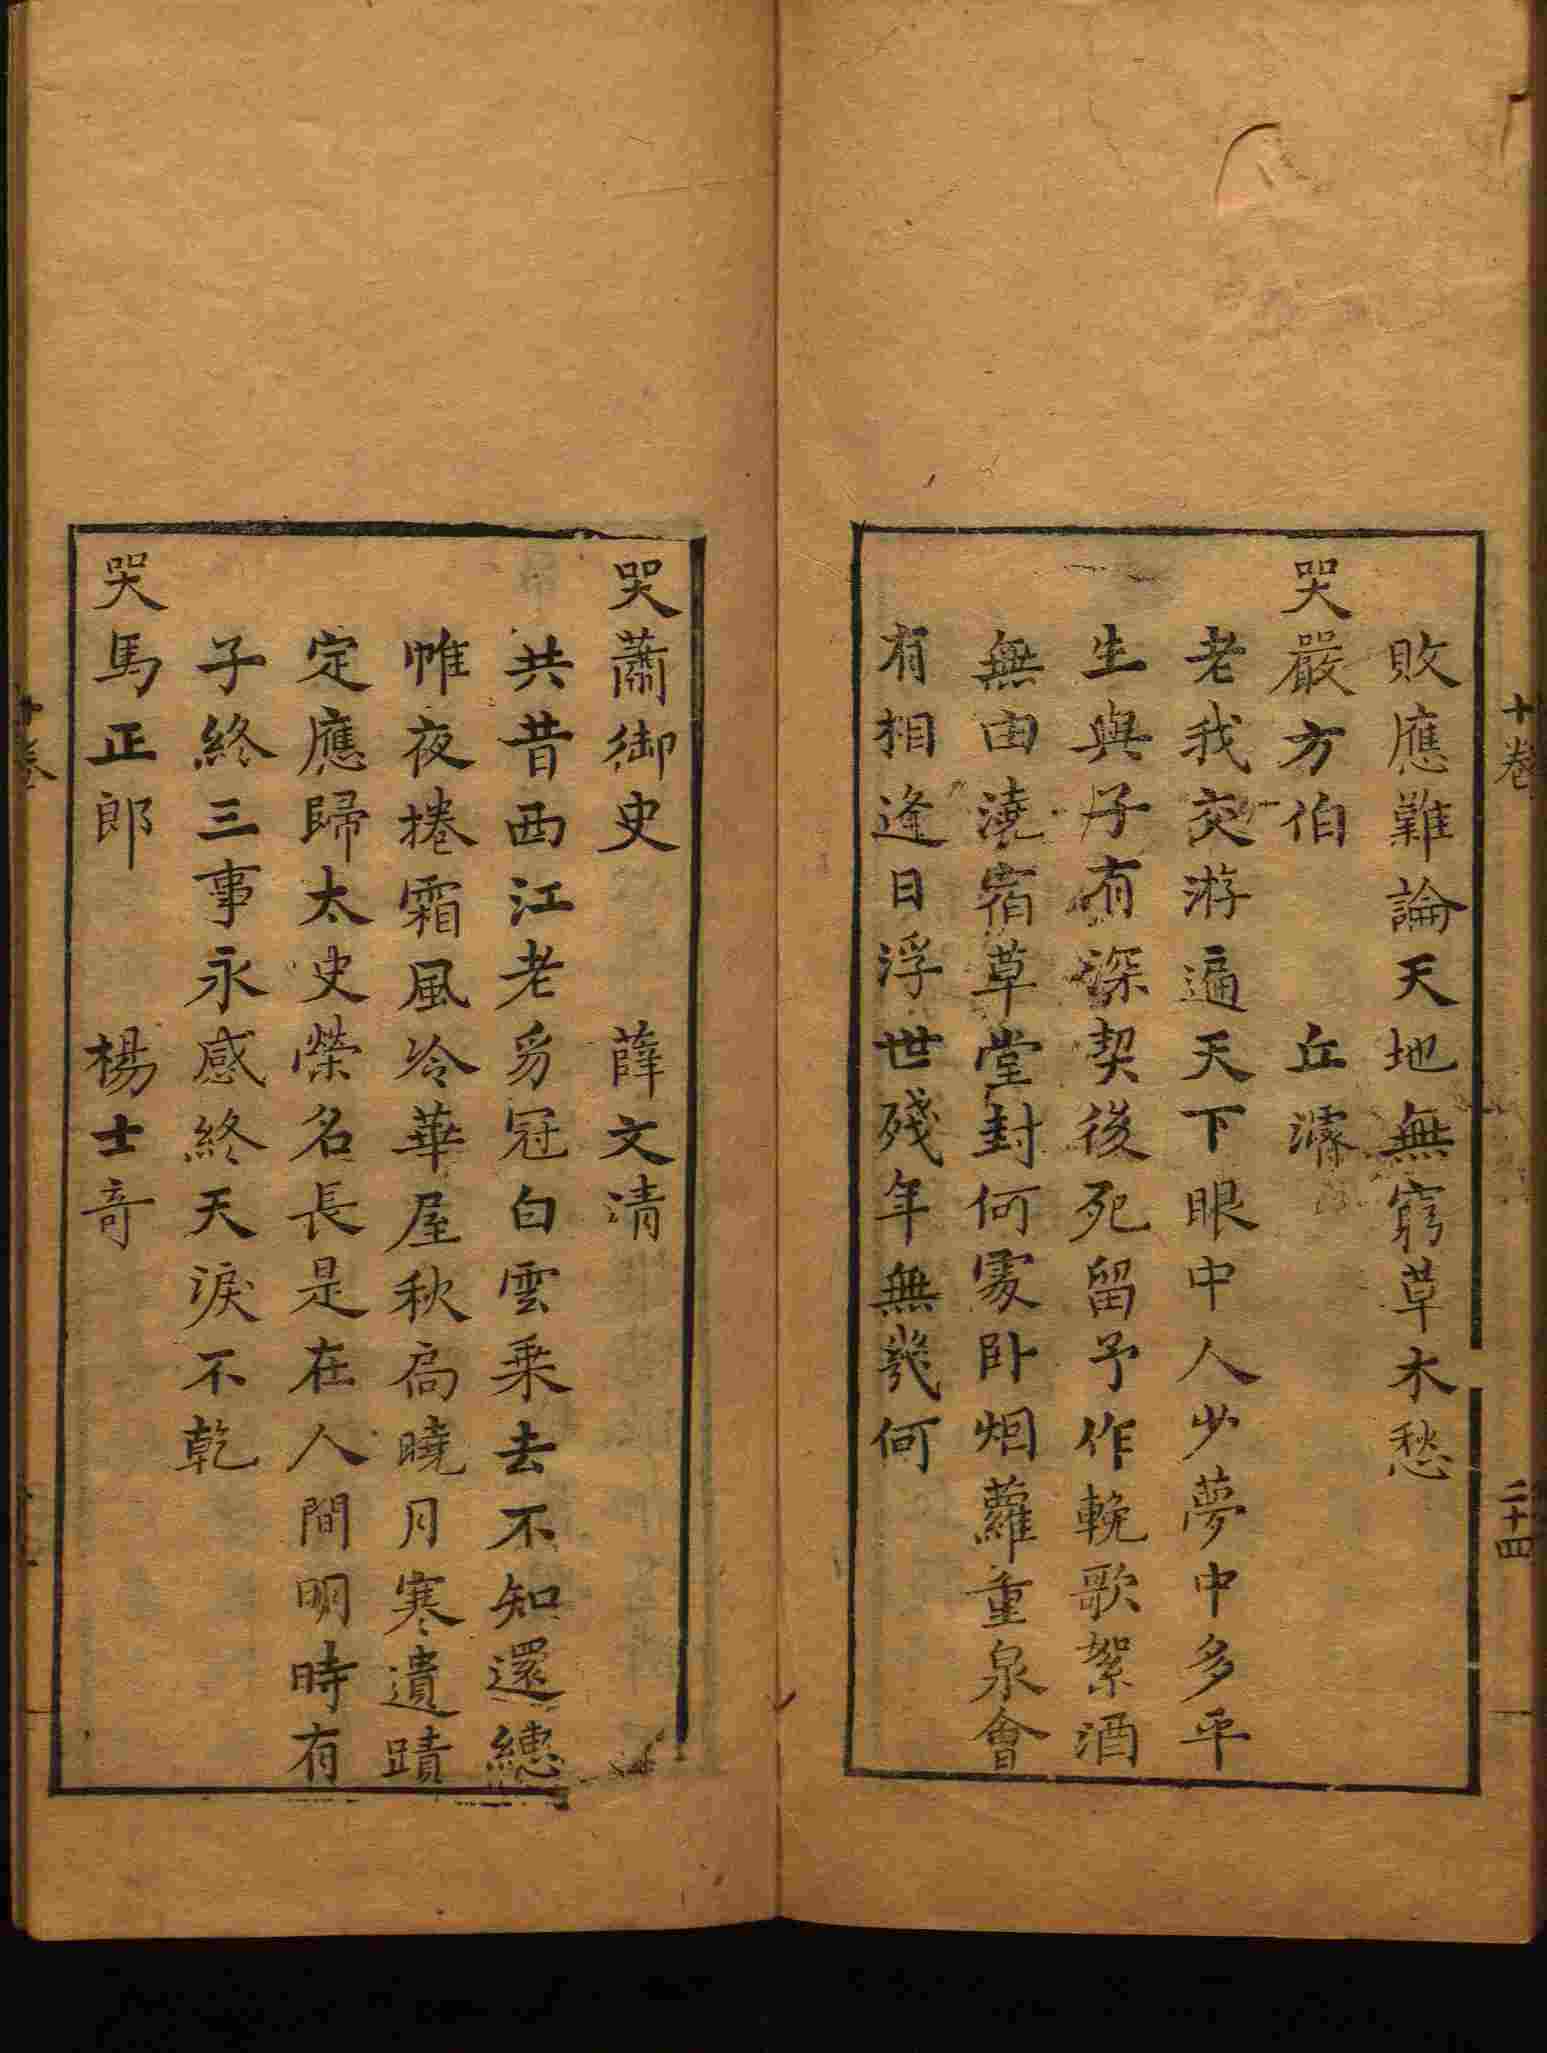 十卷
二十四
敗應難論天地無窮草木愁
哭嚴方伯 丘濬
老我交游遍天下眼中人少夢中多平
生與子有深契後死留予作輓歌絮酒
無由澆宿草堂封何處卧烟蘿重泉會
有相逢日浮世殘年無幾何
哭蕭御史 薛文清
共昔西江老豸冠白雲乗去不知還繐
帷夜捲霜風冷華屋秋扃曉月寒遺蹟
定應歸太史榮名長是在人間明時有
子終三事永感終天淚不乾
哭馬正郎 楊士奇
十卷